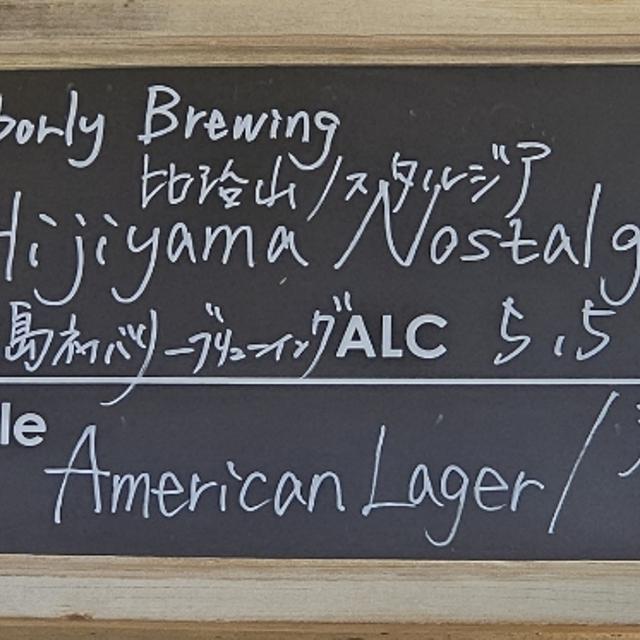 Brewing
比治山ノスタルジア
Hijiyama Nostalg
島 バリーブリューイング ALC 5.5
le American Lager /